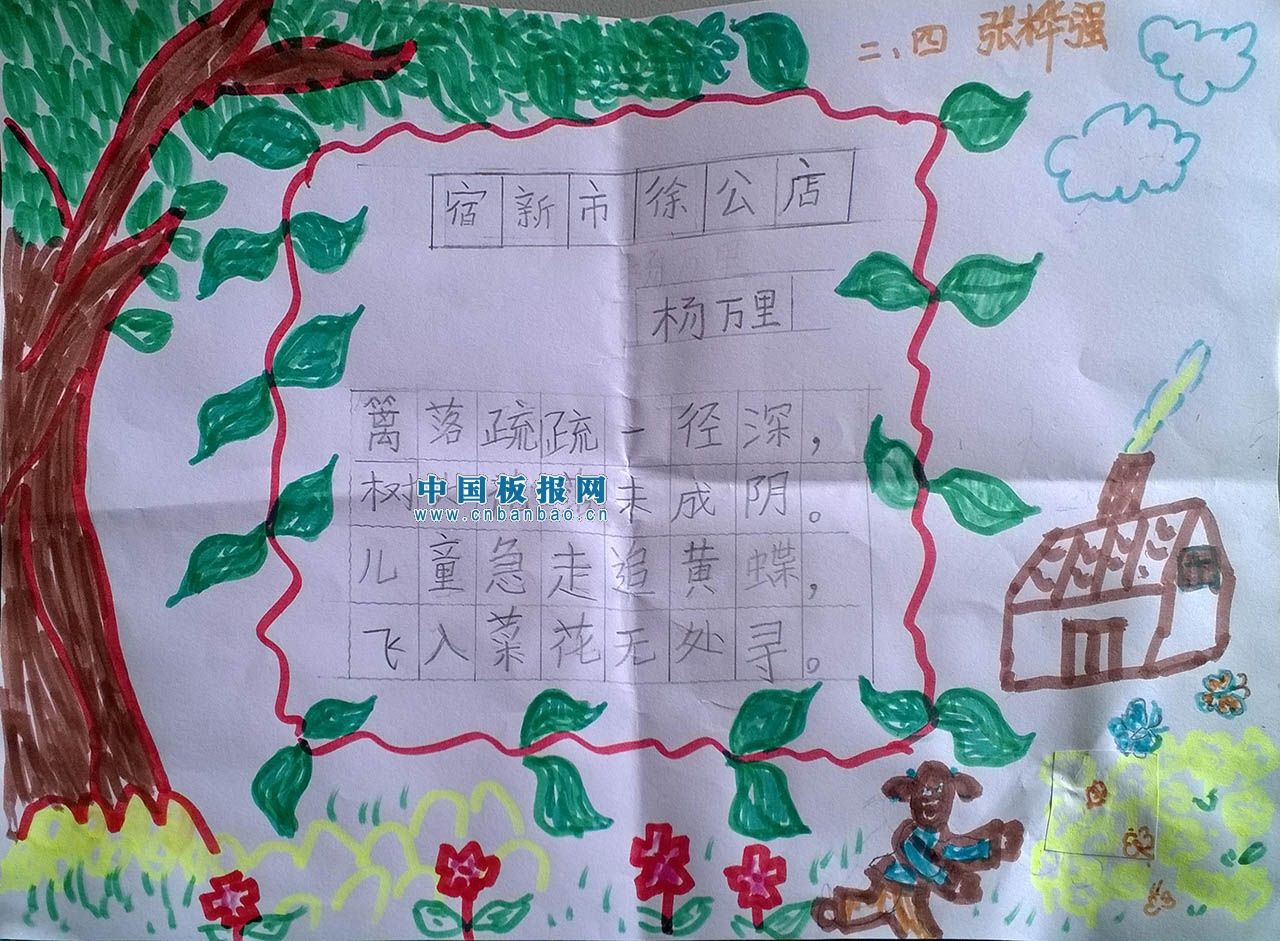 二、四 张桦强
宿新市徐公店
杨万里
篱落疏疏一径深，
树 未成阴。
中国板报网
www.cnbanbao.cn
儿童急走追黄蝶，
飞入菜花无处寻。